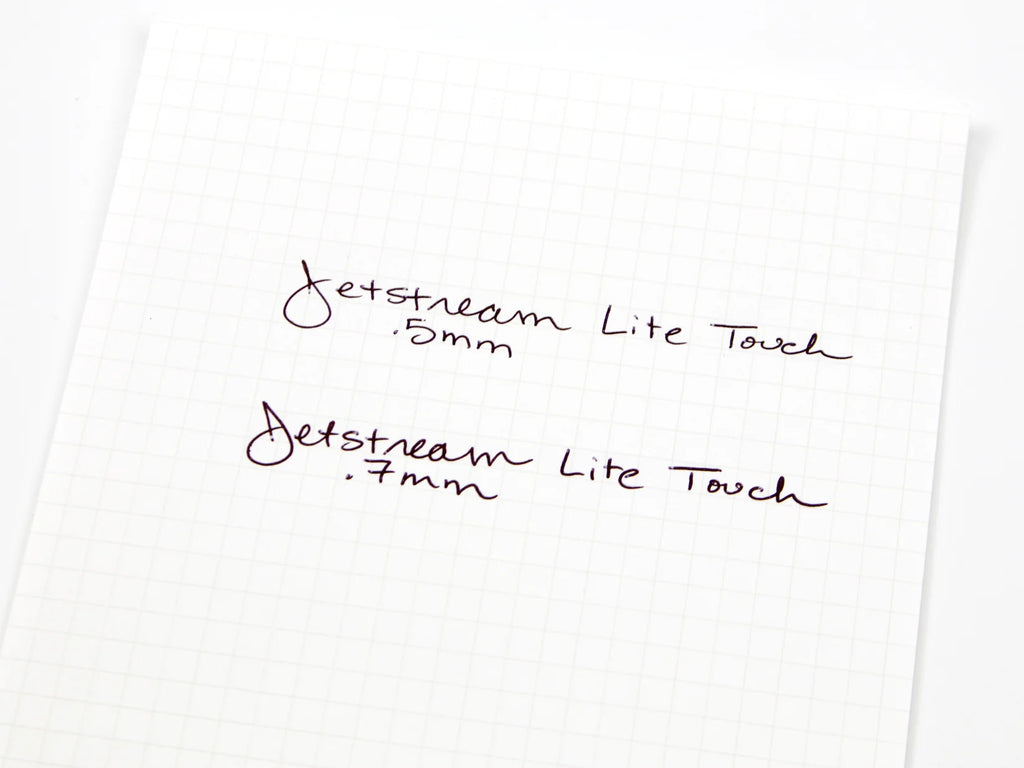 Jetstream Lite Touch
.5mm
Jetstream Lite Touch
.7mm